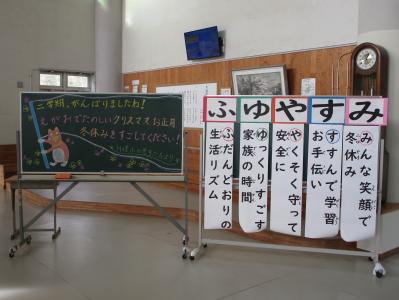 二学期、がんばりましたね!
えがおでたのしいクリスマス、お正月、
冬休みをすごしてください!
ふゆやすみ
ふだんどおりの
生活リズム
ゆっくりすごす
家族の時間
やくそく守って
安全に
すすんで学習
お手伝い
みんな笑顔で
冬休み